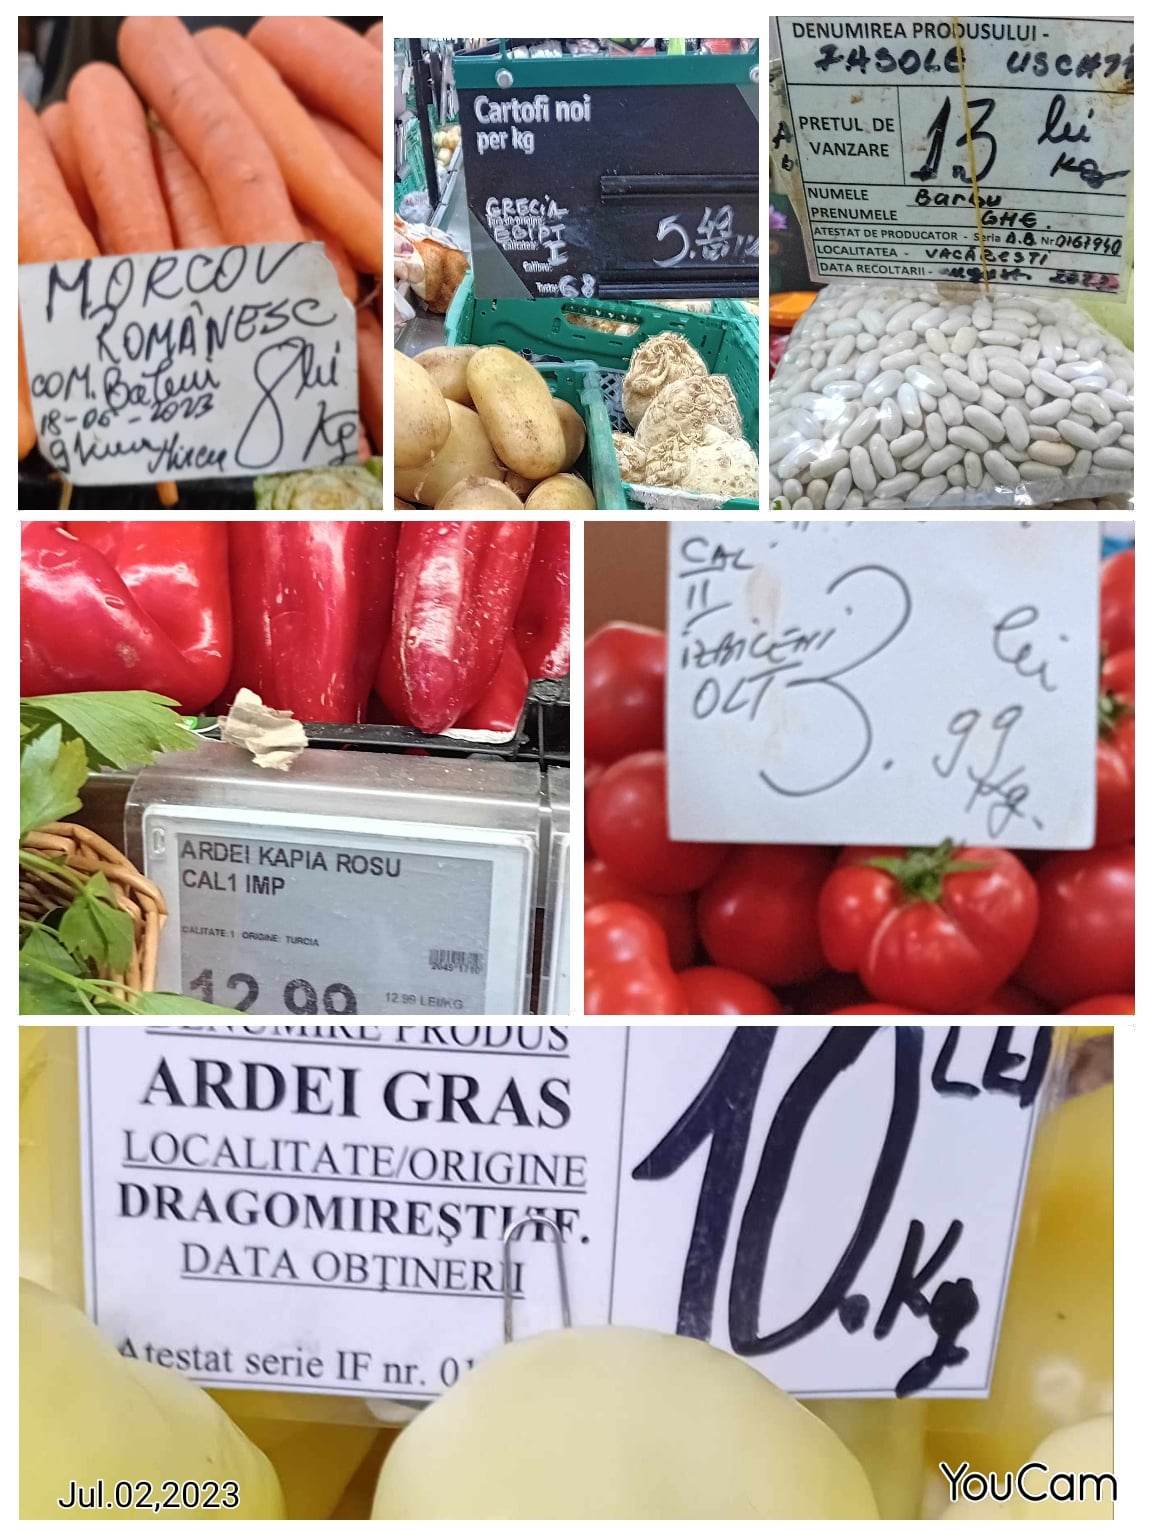 MORCOV
ROMÂNESC
COM.
18-06-2023
8 lei
Kg
Cartofi noi
per kg
GRECIA
EGIPT
Calitate:
I
Calibru:
68
5.49
DENUMIREA PRODUSULUI -
FASOLE USCATA
PRETUL DE
VANZARE
13 lei
kg
NUMELE Barbu
PRENUMELE GHE.
ATESTAT DE PRODUCATOR - Seria A.B. Nr 0167940
LOCALITATEA - VACARESTI
DATA RECOLTARII -
ARDEI KAPIA ROSU
CAL1 IMP
CALITATE:1 ORIGINE: TURCIA
12.99
12.99 LEI/KG
CAL
II
IZBICENI
OLT
3.99
lei
Kg.
DENUMIRE PRODUS
ARDEI GRAS
LOCALITATE/ORIGINE
DRAGOMIREŞTI/IF.
DATA OBŢINERII
Atestat serie IF nr. 01
10 LEI
Kg
Jul.02,2023
YouCam